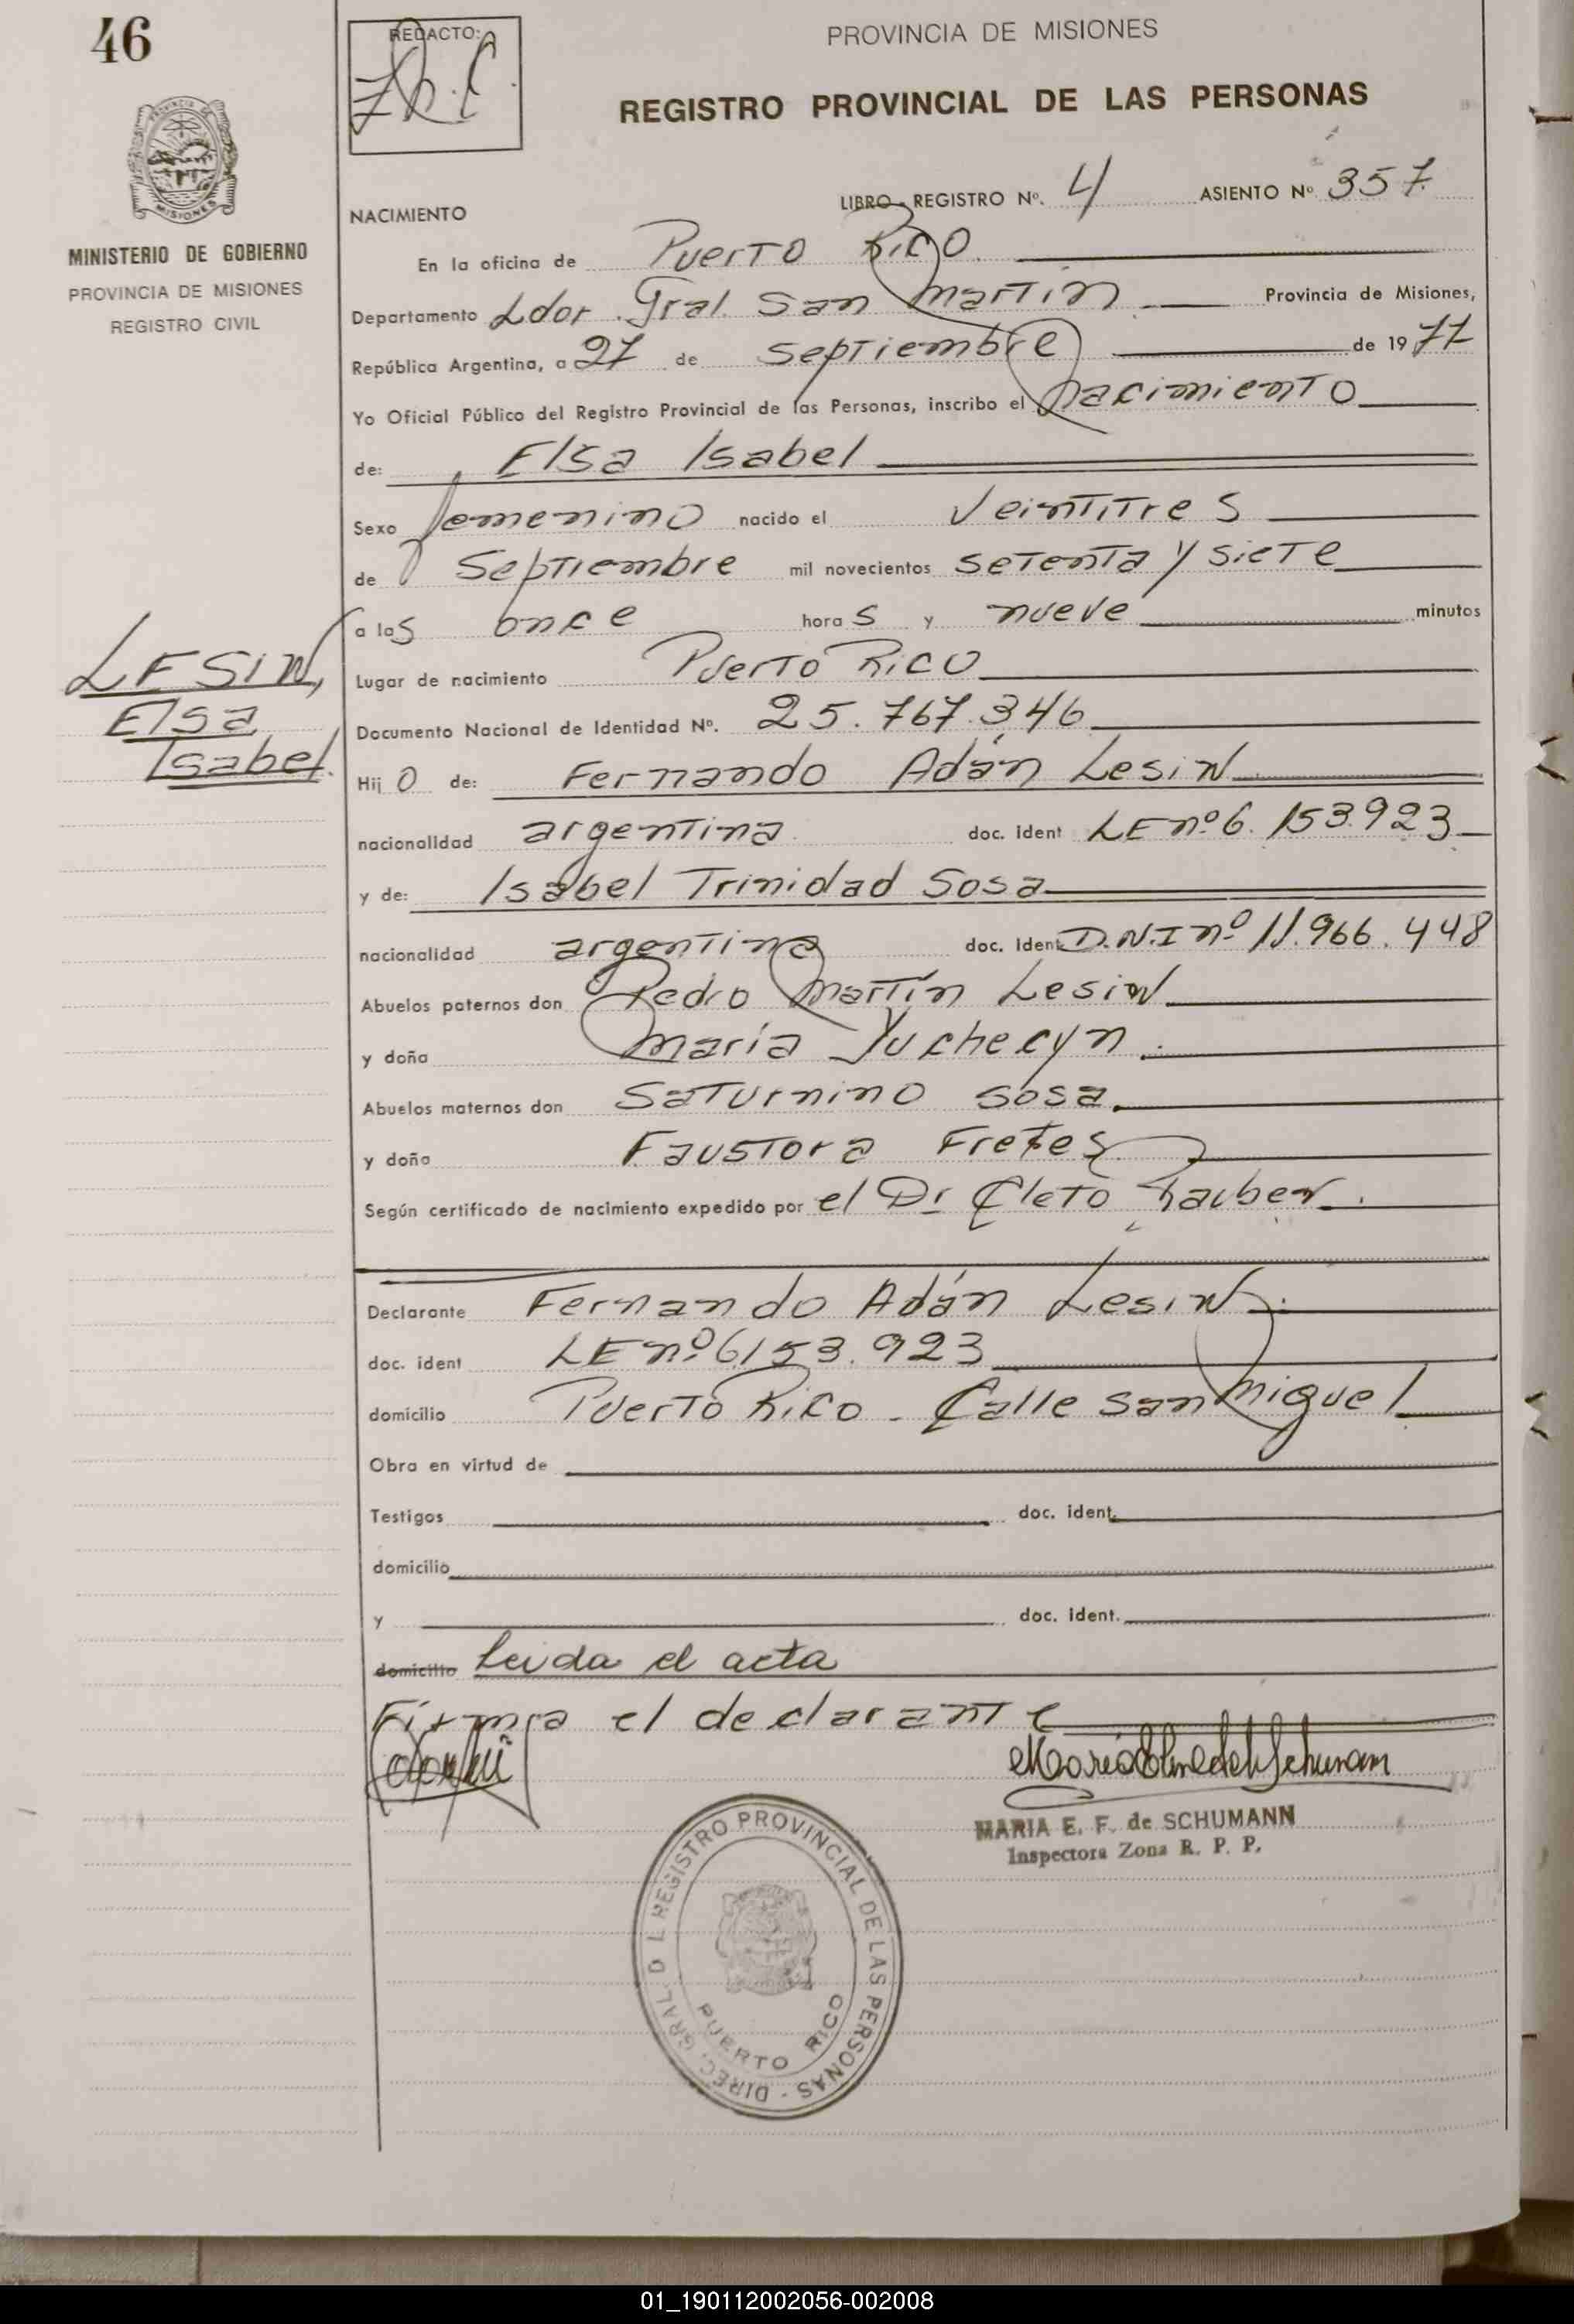 46
REDACTO:
PROVINCIA DE MISIONES
REGISTRO PROVINCIAL DE LAS PERSONAS
MINISTERIO DE GOBIERNO
PROVINCIA DE MISIONES
REGISTRO CIVIL
MISIONES
NACIMIENTO
LIBRO - REGISTRO Nº. 4 ASIENTO Nº 357
En la oficina de Puerto Rico.
Departamento Ldor. Gral. San Martín Provincia de Misiones,
República Argentina, a 27 de Septiembre de 1977
Yo Oficial Público del Registro Provincial de las Personas, inscribo el nacimiento
de: Elsa Isabel
Sexo femenino nacido el Veintitres
de Septiembre mil novecientos setenta y siete
a las once horas y nueve minutos
LESIN,
Elsa
Isabel.
Lugar de nacimiento Puerto Rico
Documento Nacional de Identidad Nº. 25.767.346
Hijo de: Fernando Adán Lesin
nacionalidad argentina doc. ident LE nº 6.153.923
y de: Isabel Trinidad Sosa
nacionalidad argentina doc. ident D.N.I nº 11.966.448
Abuelos paternos don Pedro Martín Lesin
y doña María Yuchecyn.
Abuelos maternos don Saturnino Sosa.
y doña Faustora Fretes
Según certificado de nacimiento expedido por el Dr Cleto Rauber.
Declarante Fernando Adán Lesin.
doc. ident LE nº 6.153.923
domicilio Puerto Rico - Calle San Miguel
Obra en virtud de
Testigos doc. ident.
domicilio
y doc. ident.
domicilio Leida el acta
Firma el declarante
MARIA E. F. de SCHUMANN
Inspectora Zona R. P. P.
DIREC. GRAL D L REGISTRO PROVINCIAL DE LAS PERSONAS -
PUERTO RICO
01_190112002056-002008